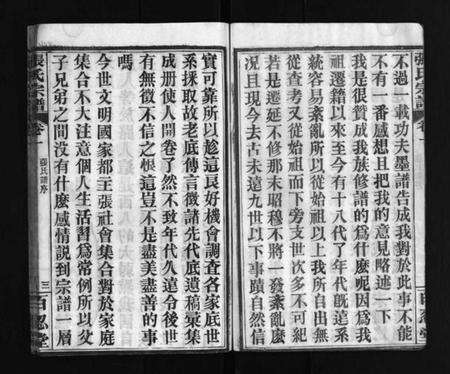 張氏宗譜 卷一
不過一載功夫墨譜告成我對於此事不能
不有一番感想且把我的意見略述一下
我是很贊成我族修譜的為什麽呢因為我
祖遷籍以來至今有十八代了年代既遠系
統容易紊亂所以從始祖以上我所自出無
從查考又從始祖而下旁支世次多不可紀
若是遷延不修那末昭穆不將一發紊亂麽
況且現今去古未遠九世以下事蹟自然信
百忍堂
實可靠所以趁這良好機會調查各家底世
系採取故老底傳言徵諸先代底遺稿彙集
成册使人開卷了然不致年代久遠令後世
有無徵不信之恨這豈不是盡美盡善的事
嗎
今世文明國家都主張社會集合對於家庭
集合不大注意個人生活習為常例所以父
子兄弟之間没有什麽感情說到宗譜一層
張氏宗譜 卷一 張氏譜序 三 百忍堂